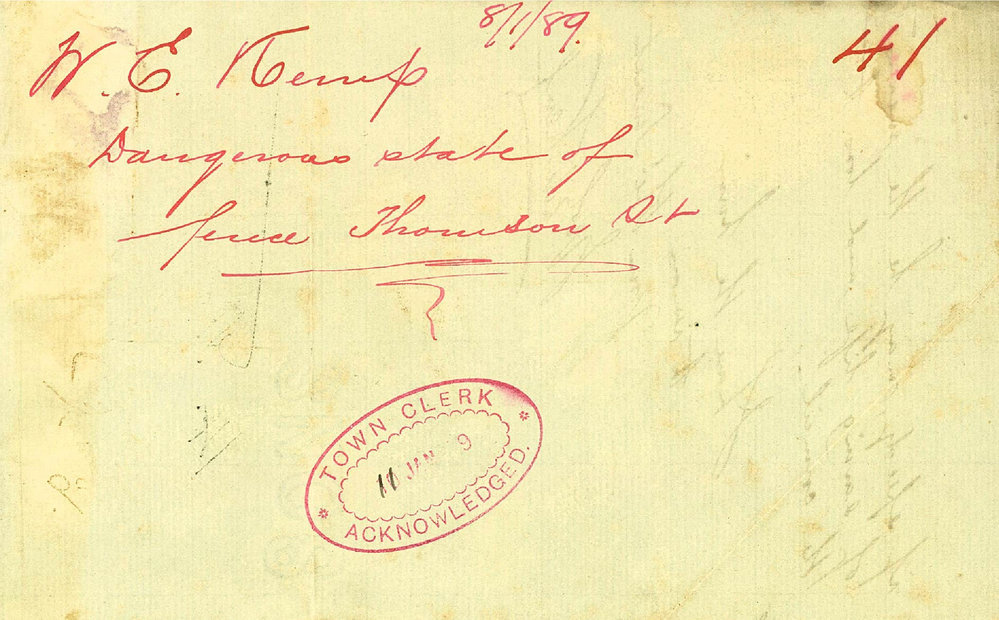 8/1/89.
W. E. Kemp 41
Dangerous state of
fence Thomson St
TOWN CLERK
JAN 9
ACKNOWLEDGED.